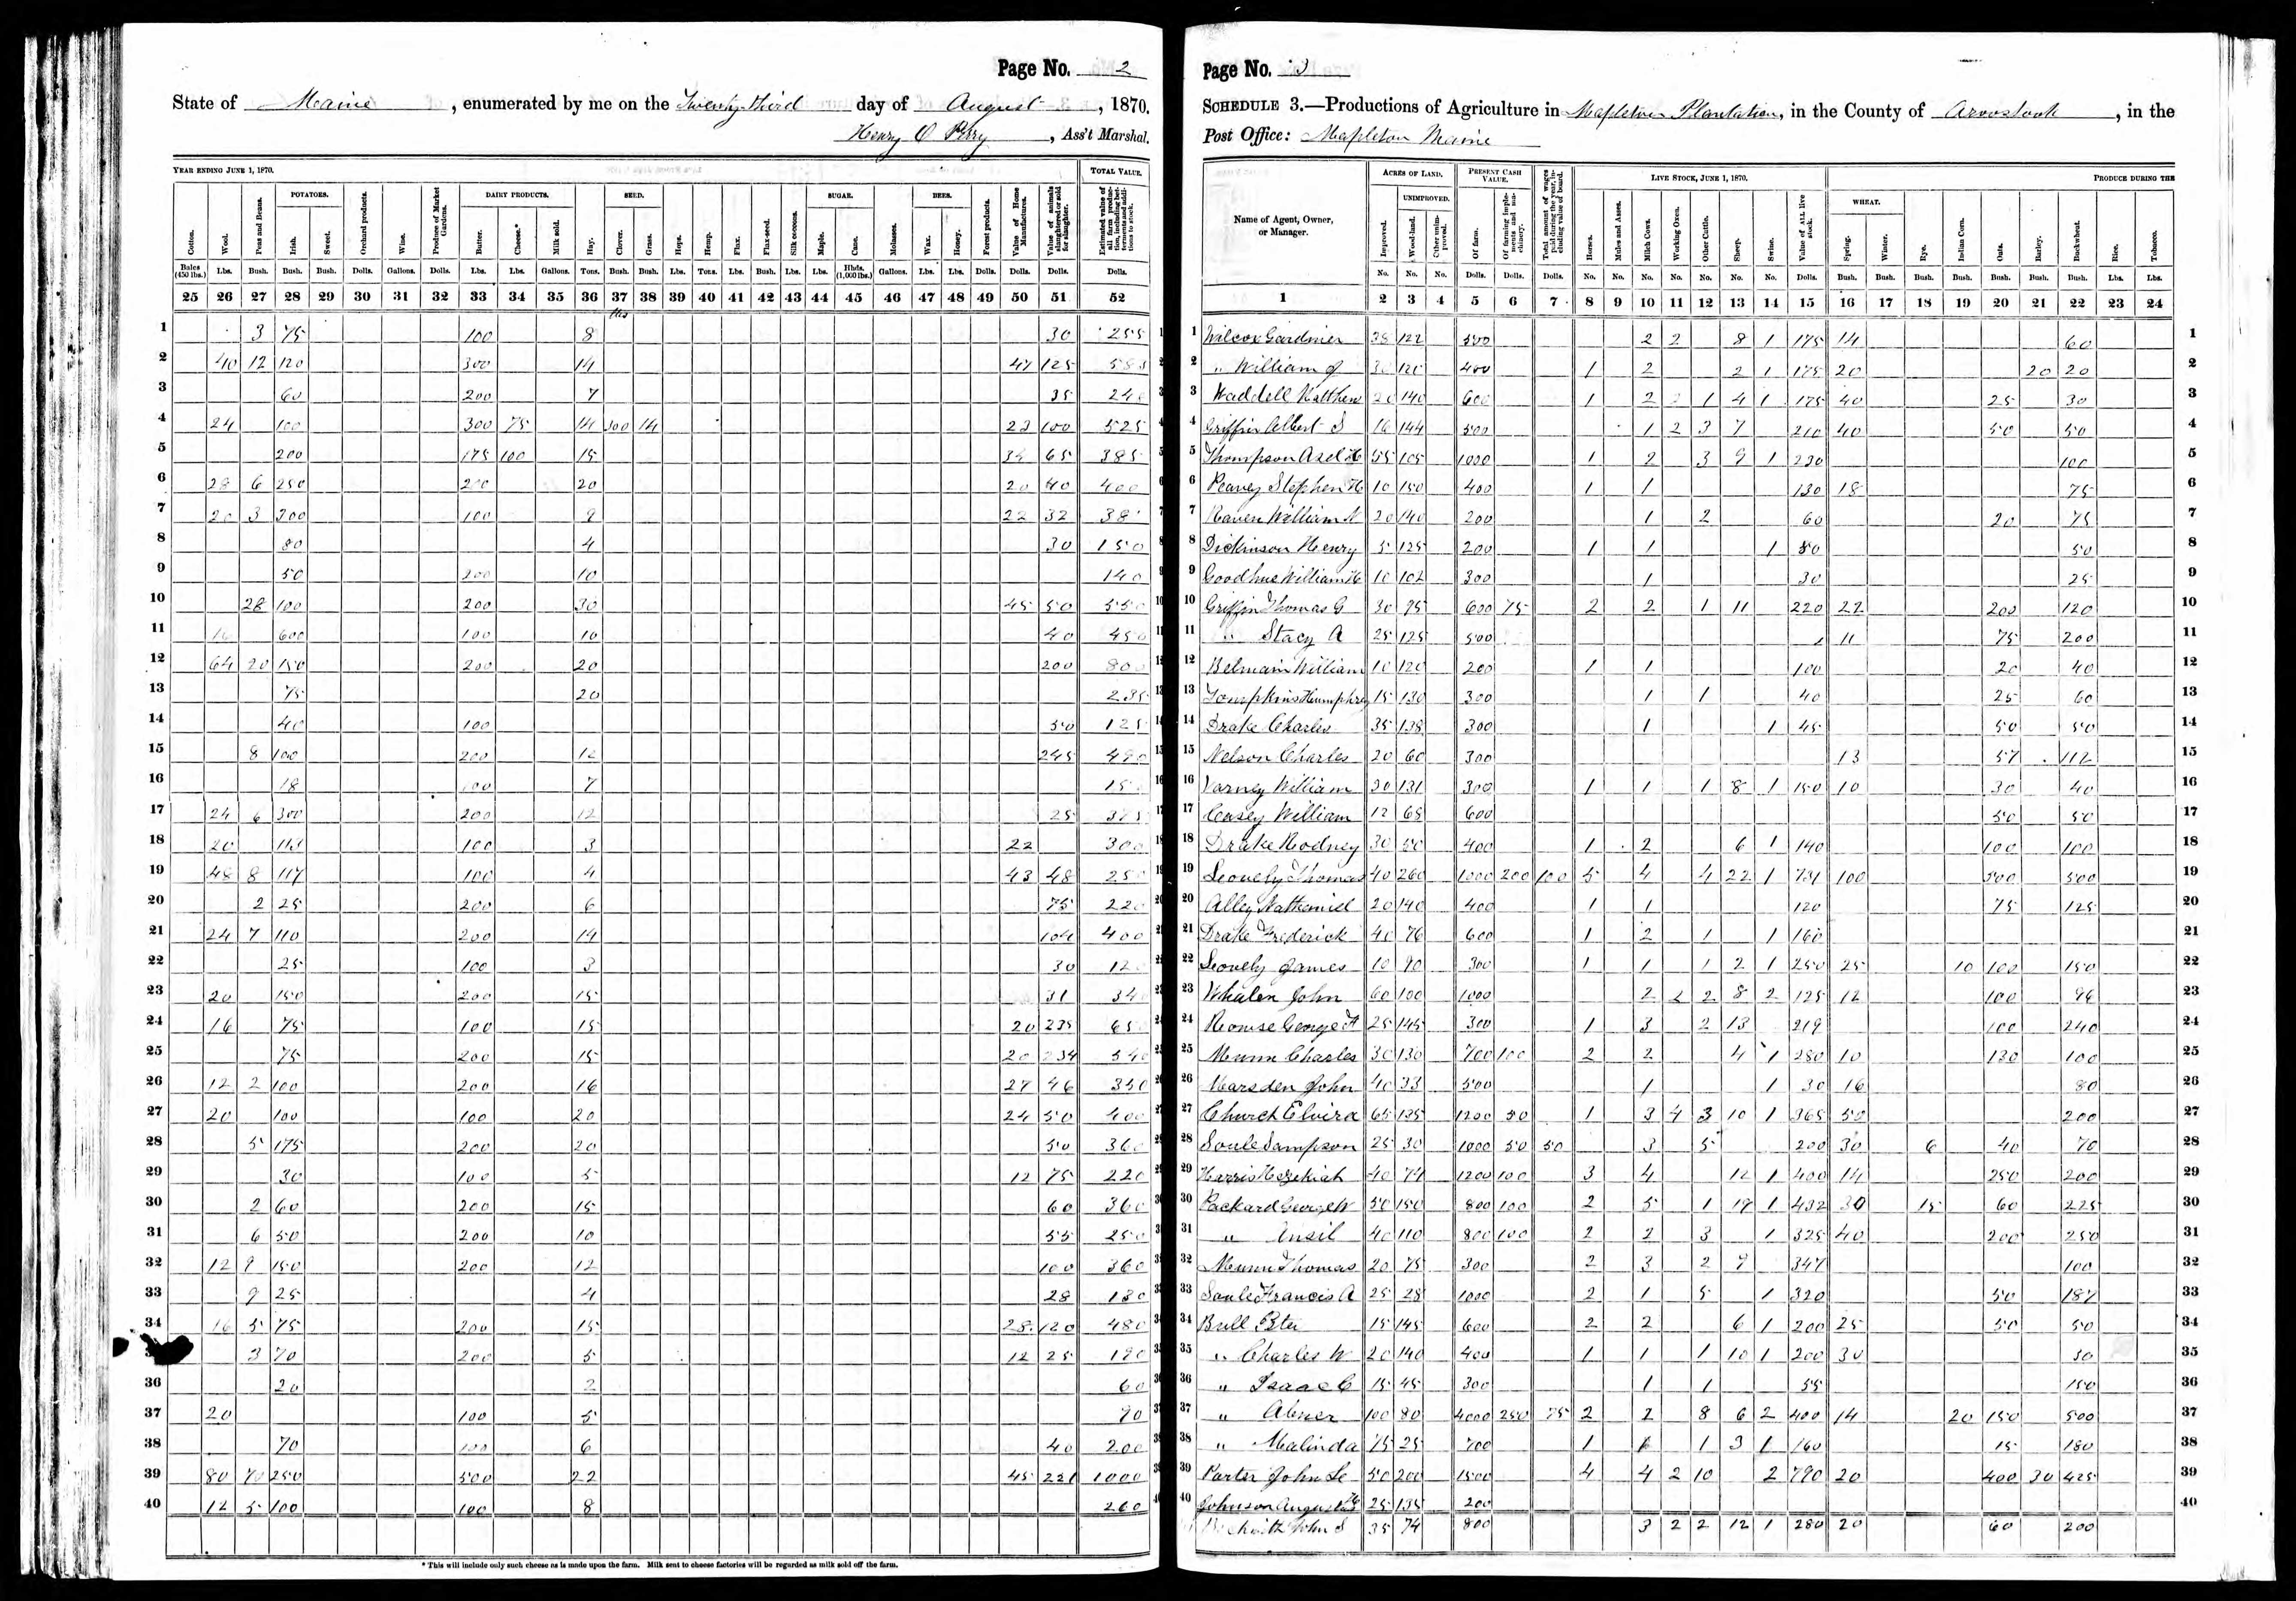 Page No. 2
State of Maine, enumerated by me on the Twenty third day of August, 1870.
Henry O Perry, Ass't Marshal.
YEAR ENDING JUNE 1, 1870. TOTAL VALUE.
POTATOES. DAIRY PRODUCTS. SEED. SUGAR. BEES.
Cotton. Wool. Peas and Beans. Irish. Sweet. Orchard products. Wine. Produce of Market Gardens. Butter. Cheese.* Milk sold. Hay. Clover. Grass. Hops. Hemp. Flax. Flax-seed. Silk cocoons. Maple. Cane. Molasses. Wax. Honey. Forest products. Value of Home Manufactures. Value of animals slaughtered or sold for slaughter. Estimated value of all farm production, including betterments and additions to stock.
Bales (450 lbs.) Lbs. Bush. Bush. Bush. Dolls. Gallons. Dolls. Lbs. Lbs. Gallons. Tons. Bush. Bush. Lbs. Tons. Lbs. Bush. Lbs. Lbs. Hhds. (1,000 lbs.) Gallons. Lbs. Lbs. Dolls. Dolls. Dolls. Dolls.
25 26 27 28 29 30 31 32 33 34 35 36 37 38 39 40 41 42 43 44 45 46 47 48 49 50 51 52
lbs
1 3 75 100 8 30 255
2 40 12 120 300 14 47 125
3 60 200 7 35
4 24 100 300 75 14 300 14 23 100 525
5 200 175 100 15 65 385
6 28 6 250 200 20 20 40 400
7 20 3 300 100 9 22 32
8 80 4 30 150
9 50 200 10 140
10 28 100 200 30 45 50 550
11 16 600 100 10 40 450
12 64 20 150 200 20 200 800
13 75 20 235
14 40 100 50 125
15 8 100 200 12 245 490
16 18 100 7
17 24 6 300 200 12 25
18 20 113 100 3 22 300
19 48 8 117 100 4 43 48 250
20 2 25 200 6 75 220
21 24 7 110 200 14 104 400
22 25 100 3 30
23 20 150 200 15 31
24 16 75 100 15 20 235
25 75 200 15 20 234
26 12 2 100 200 16 27 46 350
27 20 100 100 20 24 50 400
28 5 175 200 20 50 360
29 30 100 5 12 75 220
30 2 60 200 15 60 360
31 6 50 200 10 55 250
32 12 9 150 200 12 100 360
33 9 25 4 28 130
34 16 5 75 200 15 28 120 480
3 70 200 5 12 25 190
36 20 2 60
37 20 100 5 90
38 70 100 6 40 200
39 80 70 250 500 22 45 221 1000
40 12 5 100 100 8 260
* This will include only such cheese as is made upon the farm. Milk sent to cheese factories will be regarded as milk sold off the farm.
Page No. 3
SCHEDULE 3.—Productions of Agriculture in Mapleton Plantation, in the County of Aroostook, in the
Post Office: Mapleton Maine
ACRES OF LAND. PRESENT CASH VALUE. LIVE STOCK, JUNE 1, 1870. PRODUCE DURING THE
UNIMPROVED. WHEAT.
Name of Agent, Owner, or Manager. Improved. Wood-land. Other unimproved. Of farm. Of farming implements and machinery. Total amount of wages paid during the year, including value of board. Horses. Mules and Asses. Milch Cows. Working Oxen. Other Cattle. Sheep. Swine. Value of ALL live stock. Spring. Winter. Rye. Indian Corn. Oats. Barley. Buckwheat. Rice. Tobacco.
No. No. No. Dolls. Dolls. Dolls. No. No. No. No. No. No. No. Dolls. Bush. Bush. Bush. Bush. Bush. Bush. Bush. Lbs. Lbs.
1 2 3 4 5 6 7 8 9 10 11 12 13 14 15 16 17 18 19 20 21 22 23 24
1 Wilcox Gardner 38 122 500 2 2 8 1 175 14 60 1
2 " William J 30 120 400 1 2 2 1 175 20 20 20 2
3 Waddell Matthew 20 140 600 1 2 2 1 4 1 175 40 25 30 3
4 Griffin Albert S 16 144 500 1 2 3 7 210 40 50 50 4
5 Thompson Asel H 55 105 1000 1 2 3 9 1 230 100 5
6 Peavey Stephen H 10 150 400 1 1 130 18 75 6
7 Raven William N 20 140 200 1 2 60 20 75 7
8 Dickinson Henry 5 125 200 1 1 1 80 50 8
9 Goodhue William H 10 102 300 1 30 25 9
10 Griffin Thomas G 30 95 600 75 2 2 1 11 220 22 200 120 10
11 " Stacy A 25 125 500 11 75 200 11
12 Belmain William 10 120 200 1 1 100 20 40 12
13 Tompkins Humphrey 15 130 300 1 1 40 25 60 13
14 Drake Charles 35 138 300 1 1 45 50 50 14
15 Nelson Charles 20 60 300 13 57 112 15
16 Varney William 30 131 300 1 1 1 8 1 150 10 30 40 16
17 Casey William 12 68 600 50 50 17
18 Drake Rodney 30 50 400 1 2 6 1 140 100 100 18
19 Leovely Thomas 40 260 1000 200 100 5 4 4 22 1 731 100 500 500 19
20 Alley Nathaniel 20 140 400 1 1 120 75 125 20
21 Drake Frederick 40 76 600 1 2 1 1 160 21
22 Leovely James 10 90 300 1 1 1 2 1 250 25 10 100 150 22
23 Whalen John 60 100 1000 2 2 2 8 2 125 12 100 96 23
24 Rowse George F 25 145 300 1 3 2 13 219 100 240 24
25 Munn Charles 30 130 700 100 2 2 4 1 280 10 130 100 25
26 Marsden John 40 33 500 1 1 30 16 80 26
27 Church Elvira 65 135 1200 50 1 3 4 3 10 1 365 50 200 27
28 Soule Sampson 25 30 1000 50 50 3 5 200 30 6 40 70 28
29 Harris Hezekiah 40 74 1200 100 3 4 12 1 400 14 250 200 29
30 Packard George W 50 150 800 100 2 5 1 19 1 432 30 15 60 225 30
31 " Ansil 40 110 800 100 2 2 3 1 325 40 200 250 31
32 Munn Thomas 20 75 300 2 3 2 9 347 100 32
33 Soule Francis A 25 28 1000 2 1 5 1 320 50 187 33
34 Bull Peter 15 145 600 2 2 6 1 200 25 50 50 34
35 " Charles W 20 140 400 1 1 1 10 1 200 30 30 35
36 " Isaac C 15 45 300 1 1 55 150 36
37 " Abner 100 80 4000 250 75 2 2 8 6 2 400 14 20 150 500 37
38 " Malinda 75 25 700 1 1 3 1 160 15 180 38
39 Porter John Le 50 200 1500 4 4 2 10 2 790 20 400 30 425 39
40 Johnson Augustus H 25 135 200 40
John S 35 74 800 3 2 2 12 1 280 20 60 200